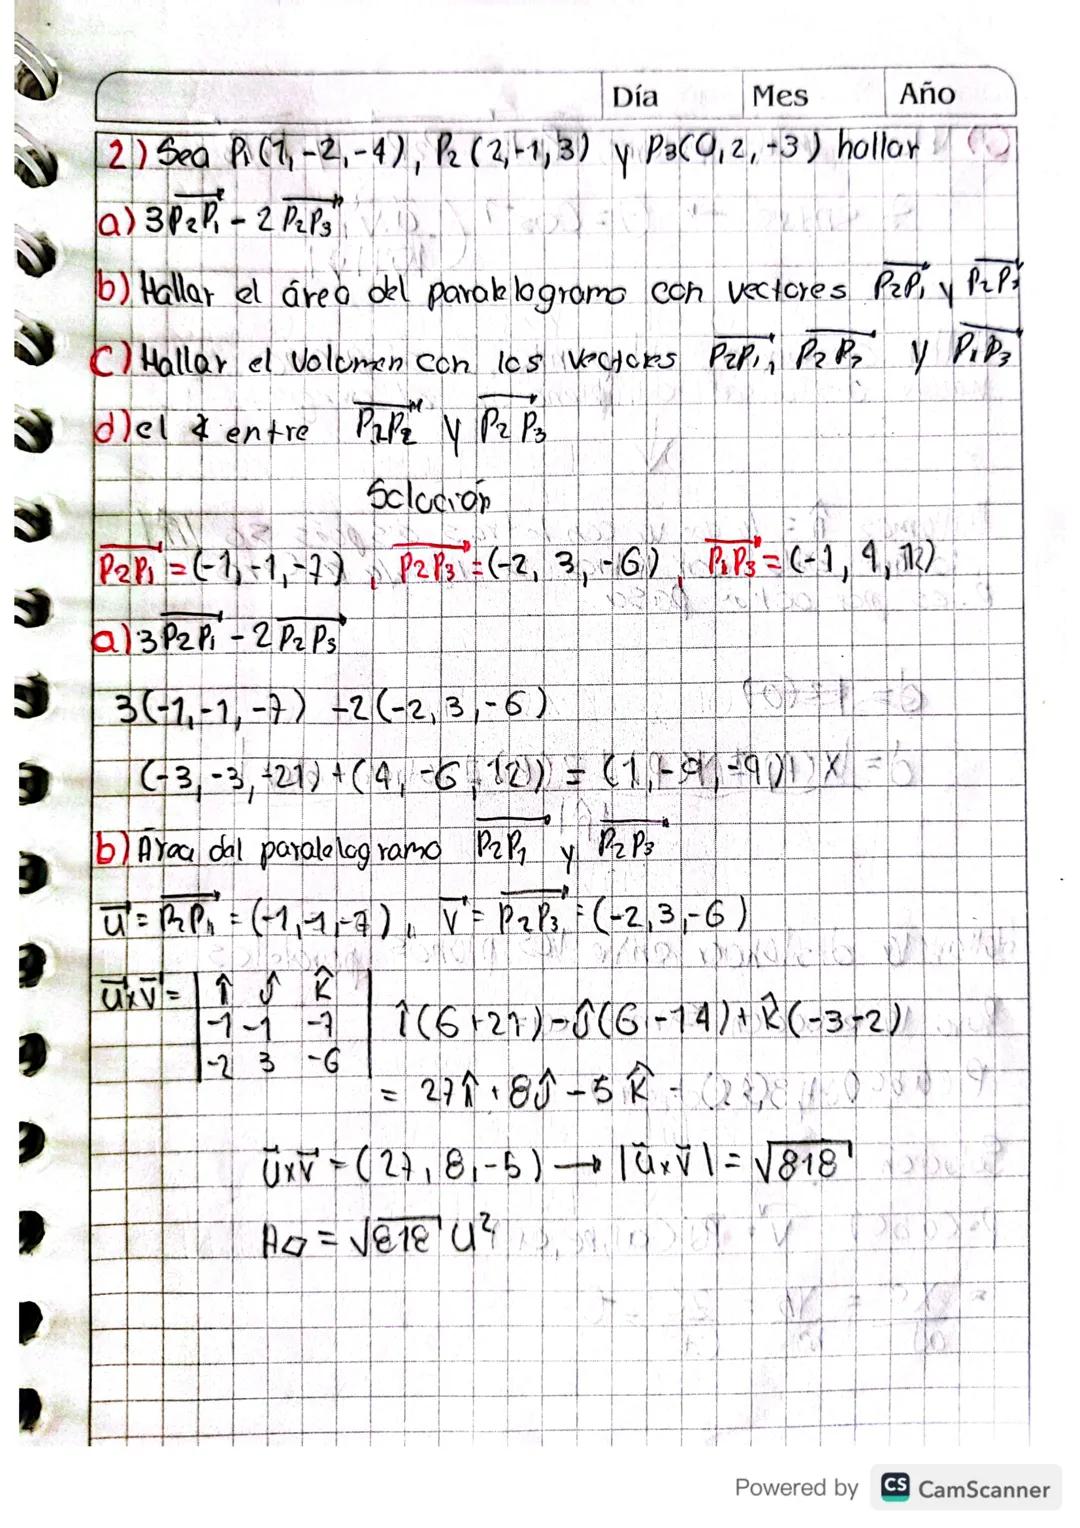 Día Mes Año
2) Sea P₁(1,-2,-4), P₂(2,-1,3) y P₃(0,2,-3) hallar
a) 3P₂P₁ - 2P₂P₃
b) Hallar el área del paralelogramo con vectores P₂P₁ y P₂P₃
c) Hallar el volumen con los vectores P₂P₁, P₂P₃ y P₁P₃
d) el ∡ entre y P₂P₃
Solución
P₂P₁ = (-1,-1,-7), P₂P₃ = (-2, 3, -6), P₁P₃ = (-1, 4, )
a) 3P₂P₁ - 2P₂P₃
3(-1,-1,-7) -2(-2,3,-6)
(-3,-3,-21) + (4,-6,12) = (1,-9,-9)
b) Área del paralelogramo P₂P₁ y P₂P₃
u = P₂P₁ = (-1,-1,-7), v = P₂P₃ = (-2,3,-6)
u×v = | î ĵ k̂ |
-1 -1 -7 î(6+21) - ĵ(6-14) + k̂(-3-2)
-2 3 -6
= 27î + 8ĵ - 5k̂
u×v = (27, 8, -5) → |u×v| = √818
A▱ = √818 u²
Powered by CS CamScanner